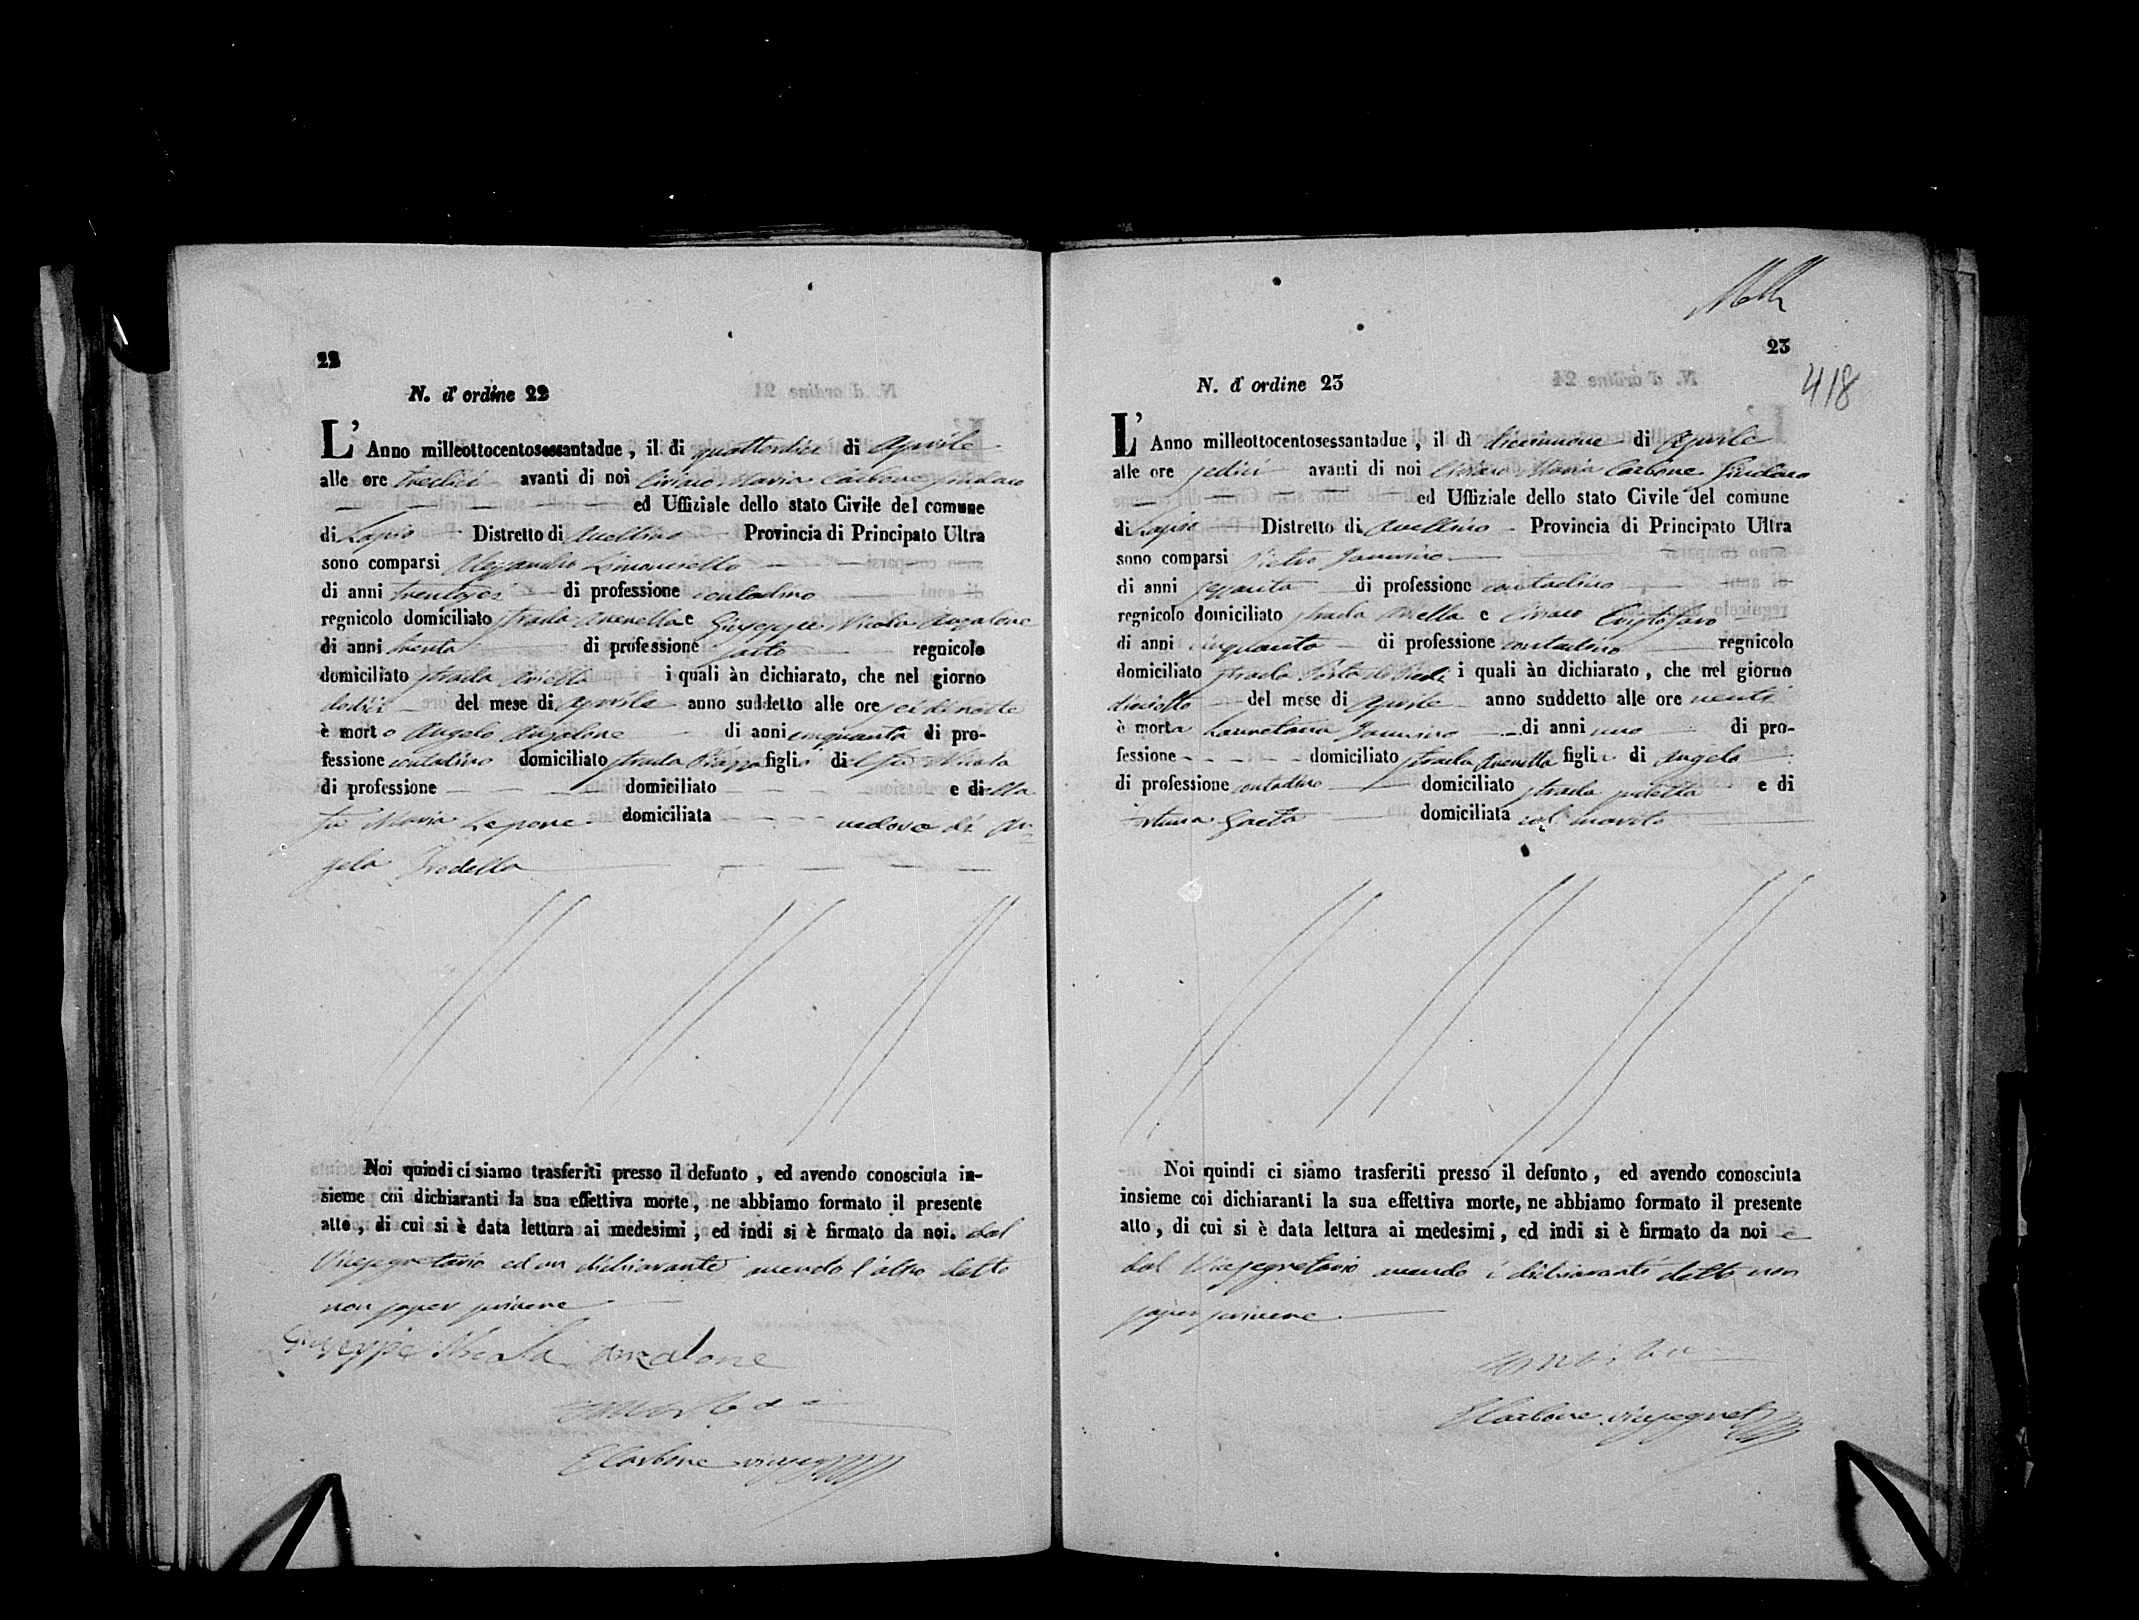 22
N. d'ordine 22
L'Anno milleottocentosessantadue, il di quattordici di Aprile
alle ore tredici avanti di noi Ciriaco Maria Carbone Sindaco
ed Uffiziale dello stato Civile del comune
di Lapio Distretto di Avellino Provincia di Principato Ultra
sono comparsi Alessandro
di anni trentasei di professione contadino
regnicolo domiciliato strada e Giuseppe Nicola Anzalone
di anni trenta di professione sarto regnicolo
domiciliato strada i quali àn dichiarato, che nel giorno
dodici del mese di Aprile anno suddetto alle ore sei di notte
è morto Angelo Anzalone di anni cinquanta di pro-
fessione contadino domiciliato strada Piazza figlio del fu Nicola
di professione domiciliato e di ella
fu Maria Lepore domiciliata vedovo di An-
gela Trodella
Noi quindi ci siamo trasferiti presso il defunto, ed avendo conosciuta in-
sieme coi dichiaranti la sua effettiva morte, ne abbiamo formato il presente
atto, di cui si è data lettura ai medesimi, ed indi si è firmato da noi. dal
Vicesegretario ed un dichiarante avendo l'altro detto
non saper scrivere
Giuseppe Nicola anzalone
C Carbone viceseg
23
418
N. d'ordine 23
L'Anno milleottocentosessantadue, il dì diciannove di Aprile
alle ore sedici avanti di noi Ciriaco Maria Carbone Sindaco
ed Uffiziale dello stato Civile del comune
di Lapio Distretto di Avellino Provincia di Principato Ultra
sono comparsi Pietro Iannino
di anni sessanta di professione contadino
regnicolo domiciliato strada e Ciriaco Cristofaro
di anni cinquanta di professione contadino regnicolo
domiciliato strada Porta di i quali àn dichiarato, che nel giorno
diciotto del mese di Aprile anno suddetto alle ore venti
è morta Lauretana Iannino di anni uno di pro-
fessione domiciliato strada figlia di Angelo
di professione contadino domiciliato strada e di
Gaeta domiciliata col marito
Noi quindi ci siamo trasferiti presso il defunto, ed avendo conosciuta
insieme coi dichiaranti la sua effettiva morte, ne abbiamo formato il presente
atto, di cui si è data lettura ai medesimi, ed indi si è firmato da noi e
dal Vicesegretario avendo i dichiaranti detto non
saper scrivere
C Carbone vicesegret